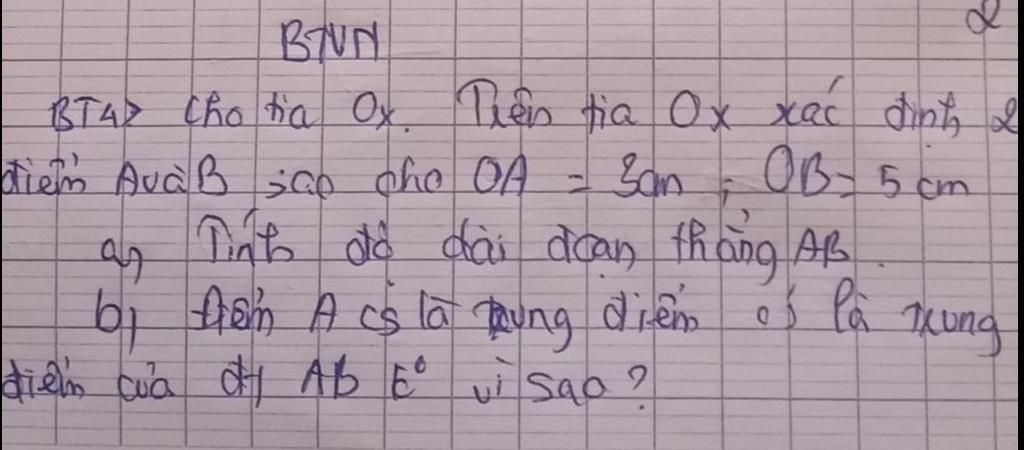 2
BTVN
BT4> Cho tia Ox. Trên tia Ox xác định 2
điểm A và B sao cho OA = 3cm, OB = 5 cm
a, Tính độ dài đoạn thẳng AB.
b, Điểm A có là trung điểm có là trung
điểm của đt AB k° vì sao?